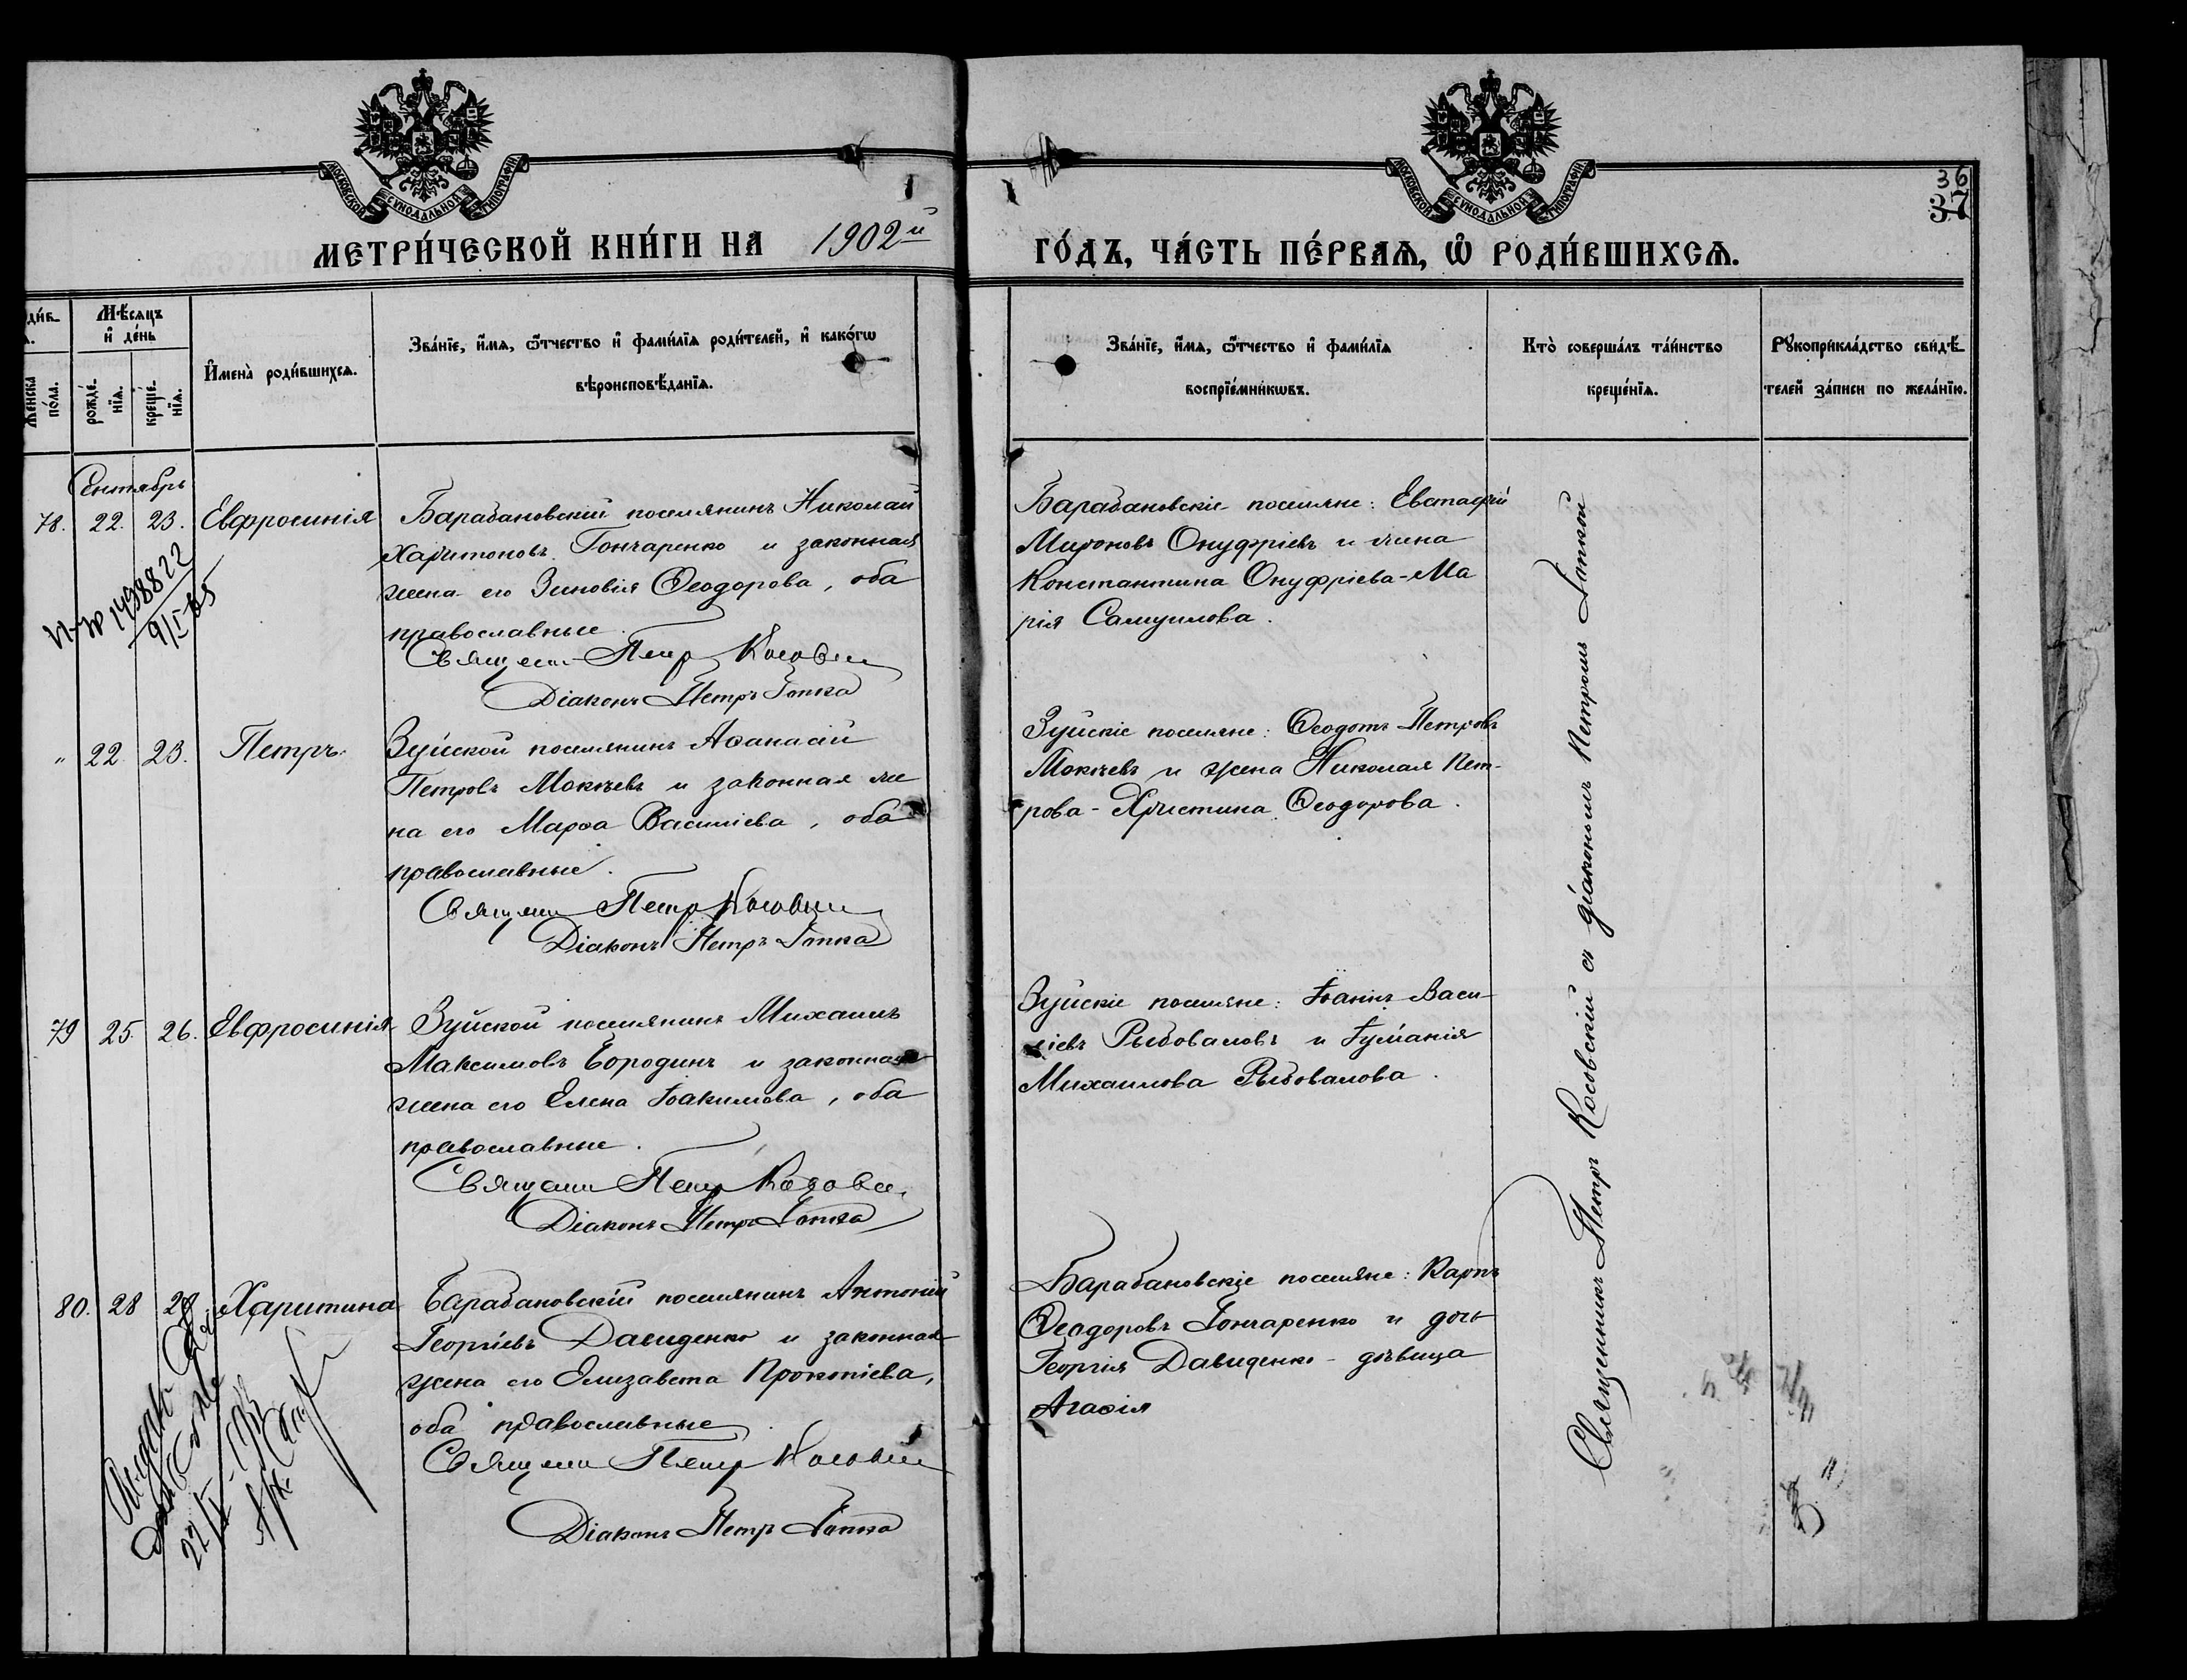 МОСКОВСКОЙ СѴНОДАЛЬНОЙ ТИПОГРАФІИ
МОСКОВСКОЙ СѴНОДАЛЬНОЙ ТИПОГРАФІИ
36
37
МЕТРИ́ЧЕСКОЙ КНИ́ГИ НА 1902й
ГО́ДЪ, ЧА́СТЬ ПЕ́РВАѦ, Ѡ҆ РОДИ́ВШИХСѦ.
Женска по́ла.
Мѣ́сяцъ и҆ де́нь
рожде́нїѧ.
креще́нїѧ.
И҆мена̀ роди́вшихсѧ.
Зва́нїе, и҆́мѧ, ѻ҆́тчество и҆ фами́лїѧ роди́телей, и҆ како́гѡ
вѣроисповѣ́данїѧ.
Зва́нїе, и҆́мѧ, ѻ҆́тчество и҆ фами́лїѧ
воспрїе́мникѡвъ.
Кто̀ соверша́лъ та́инство
креще́нїѧ.
Рꙋкоприкла́дство свидѣ́-
телей за́писи по жела́нїю.
Сентябрь
78. 22. 23. Евфросинія
Барабановскій поселянинъ Николай
Харитоновъ Гончаренко и законная
жена его Зиновія Ѳеодорова, оба
православные.
Священ. Петр Косовскій
Діаконъ Петръ Гопка
Барабановскіе поселяне: Евстафій
Мироновъ Онуфріевъ и жена
Константина Онуфріева-Ма
рія Самуилова.
" 22. 23. Петръ.
Зуйской поселянинъ Аѳанасій
Петровъ Мокіевъ и законная же
на его Марѳа Василіева, оба
православные.
Священ Петр Косовскій
Діаконъ Петръ Гопка
Зуйскіе поселяне: Ѳеодотъ Петровъ
Мокіевъ и жена Николая Пет-
рова-Христина Ѳеодорова.
79 25. 26. Евфросинія
Зуйской поселянинъ Михаилъ
Максимовъ Бородинъ и законная
жена его Елена Іоакимова, оба
православные.
Священ Петр Косовскій
Діаконъ Петръ Гопка
Зуйскіе поселяне: Іоаннъ Васи-
ліевъ Рыбоваловъ и Іуліанія
Михаилова Рыбовалова.
80. 28 29. Харитина
Барабановскій поселянинъ Антоній
Георгіевъ Давиденко и законная
жена его Елизавета Прокопіева,
оба православные.
Священ Петр Косовскій
Діаконъ Петръ Гопка
Барабановскіе поселяне: Карпъ
Ѳеодоровъ Гончаренко и дочь
Георгія Давиденко-дѣвица
Агаѳія
Священникъ Петръ Косовскій съ діакономъ Петромъ Гопкой